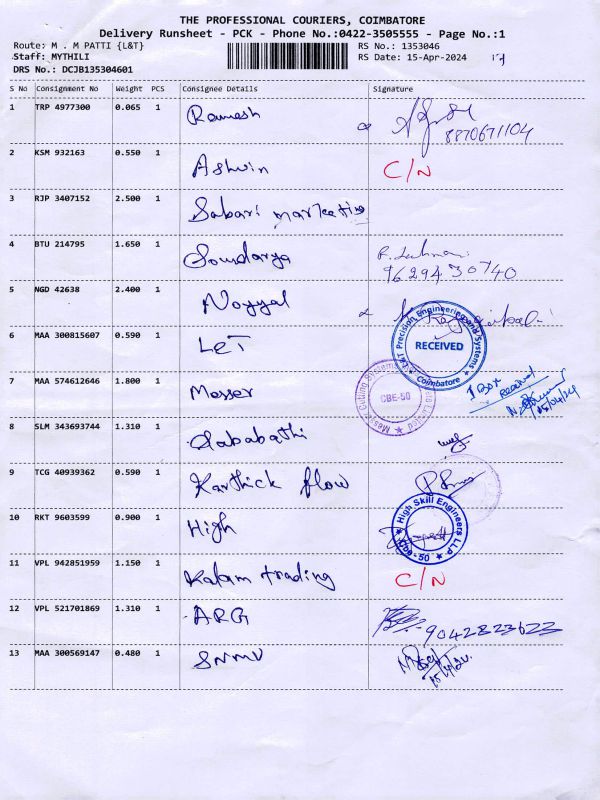 THE PROFESSIONAL COURIERS, COIMBATORE
Delivery Runsheet - PCK - Phone No.:0422-3505555 - Page No.:1
Route: M . M PATTI {L&T} RS No.: 1353046
Staff: MYTHILI RS Date: 15-Apr-2024 17
DRS No.: DCJB135304601
S No Consignment No Weight PCS Consignee Details Signature
1 TRP 4977300 0.065 1 Ramesh
8870671104
2 KSM 932163 0.550 1 Ashwin C/N
3 RJP 3407152 2.500 1 Sabari marketing
4 BTU 214795 1.650 1 Soundarya
9629430740
5 NGD 42638 2.400 1 Noyyal
L&T Precision Engineering and Systems
RECEIVED
Coimbatore
6 MAA 300815607 0.590 1 L&T
1 Box
received
15/04/24
7 MAA 574612646 1.800 1 Messer
Messer Cutting Systems
CBE-50
8 SLM 343693744 1.310 1
9 TCG 40939362 0.590 1 Karthick flow
10 RKT 9603599 0.900 1 High
High Skill Engineers LLP
CBE-50
11 VPL 942851959 1.150 1 Kalam trading C/N
12 VPL 521701869 1.310 1 ARG
9042823623
13 MAA 300569147 0.480 1 SNMV